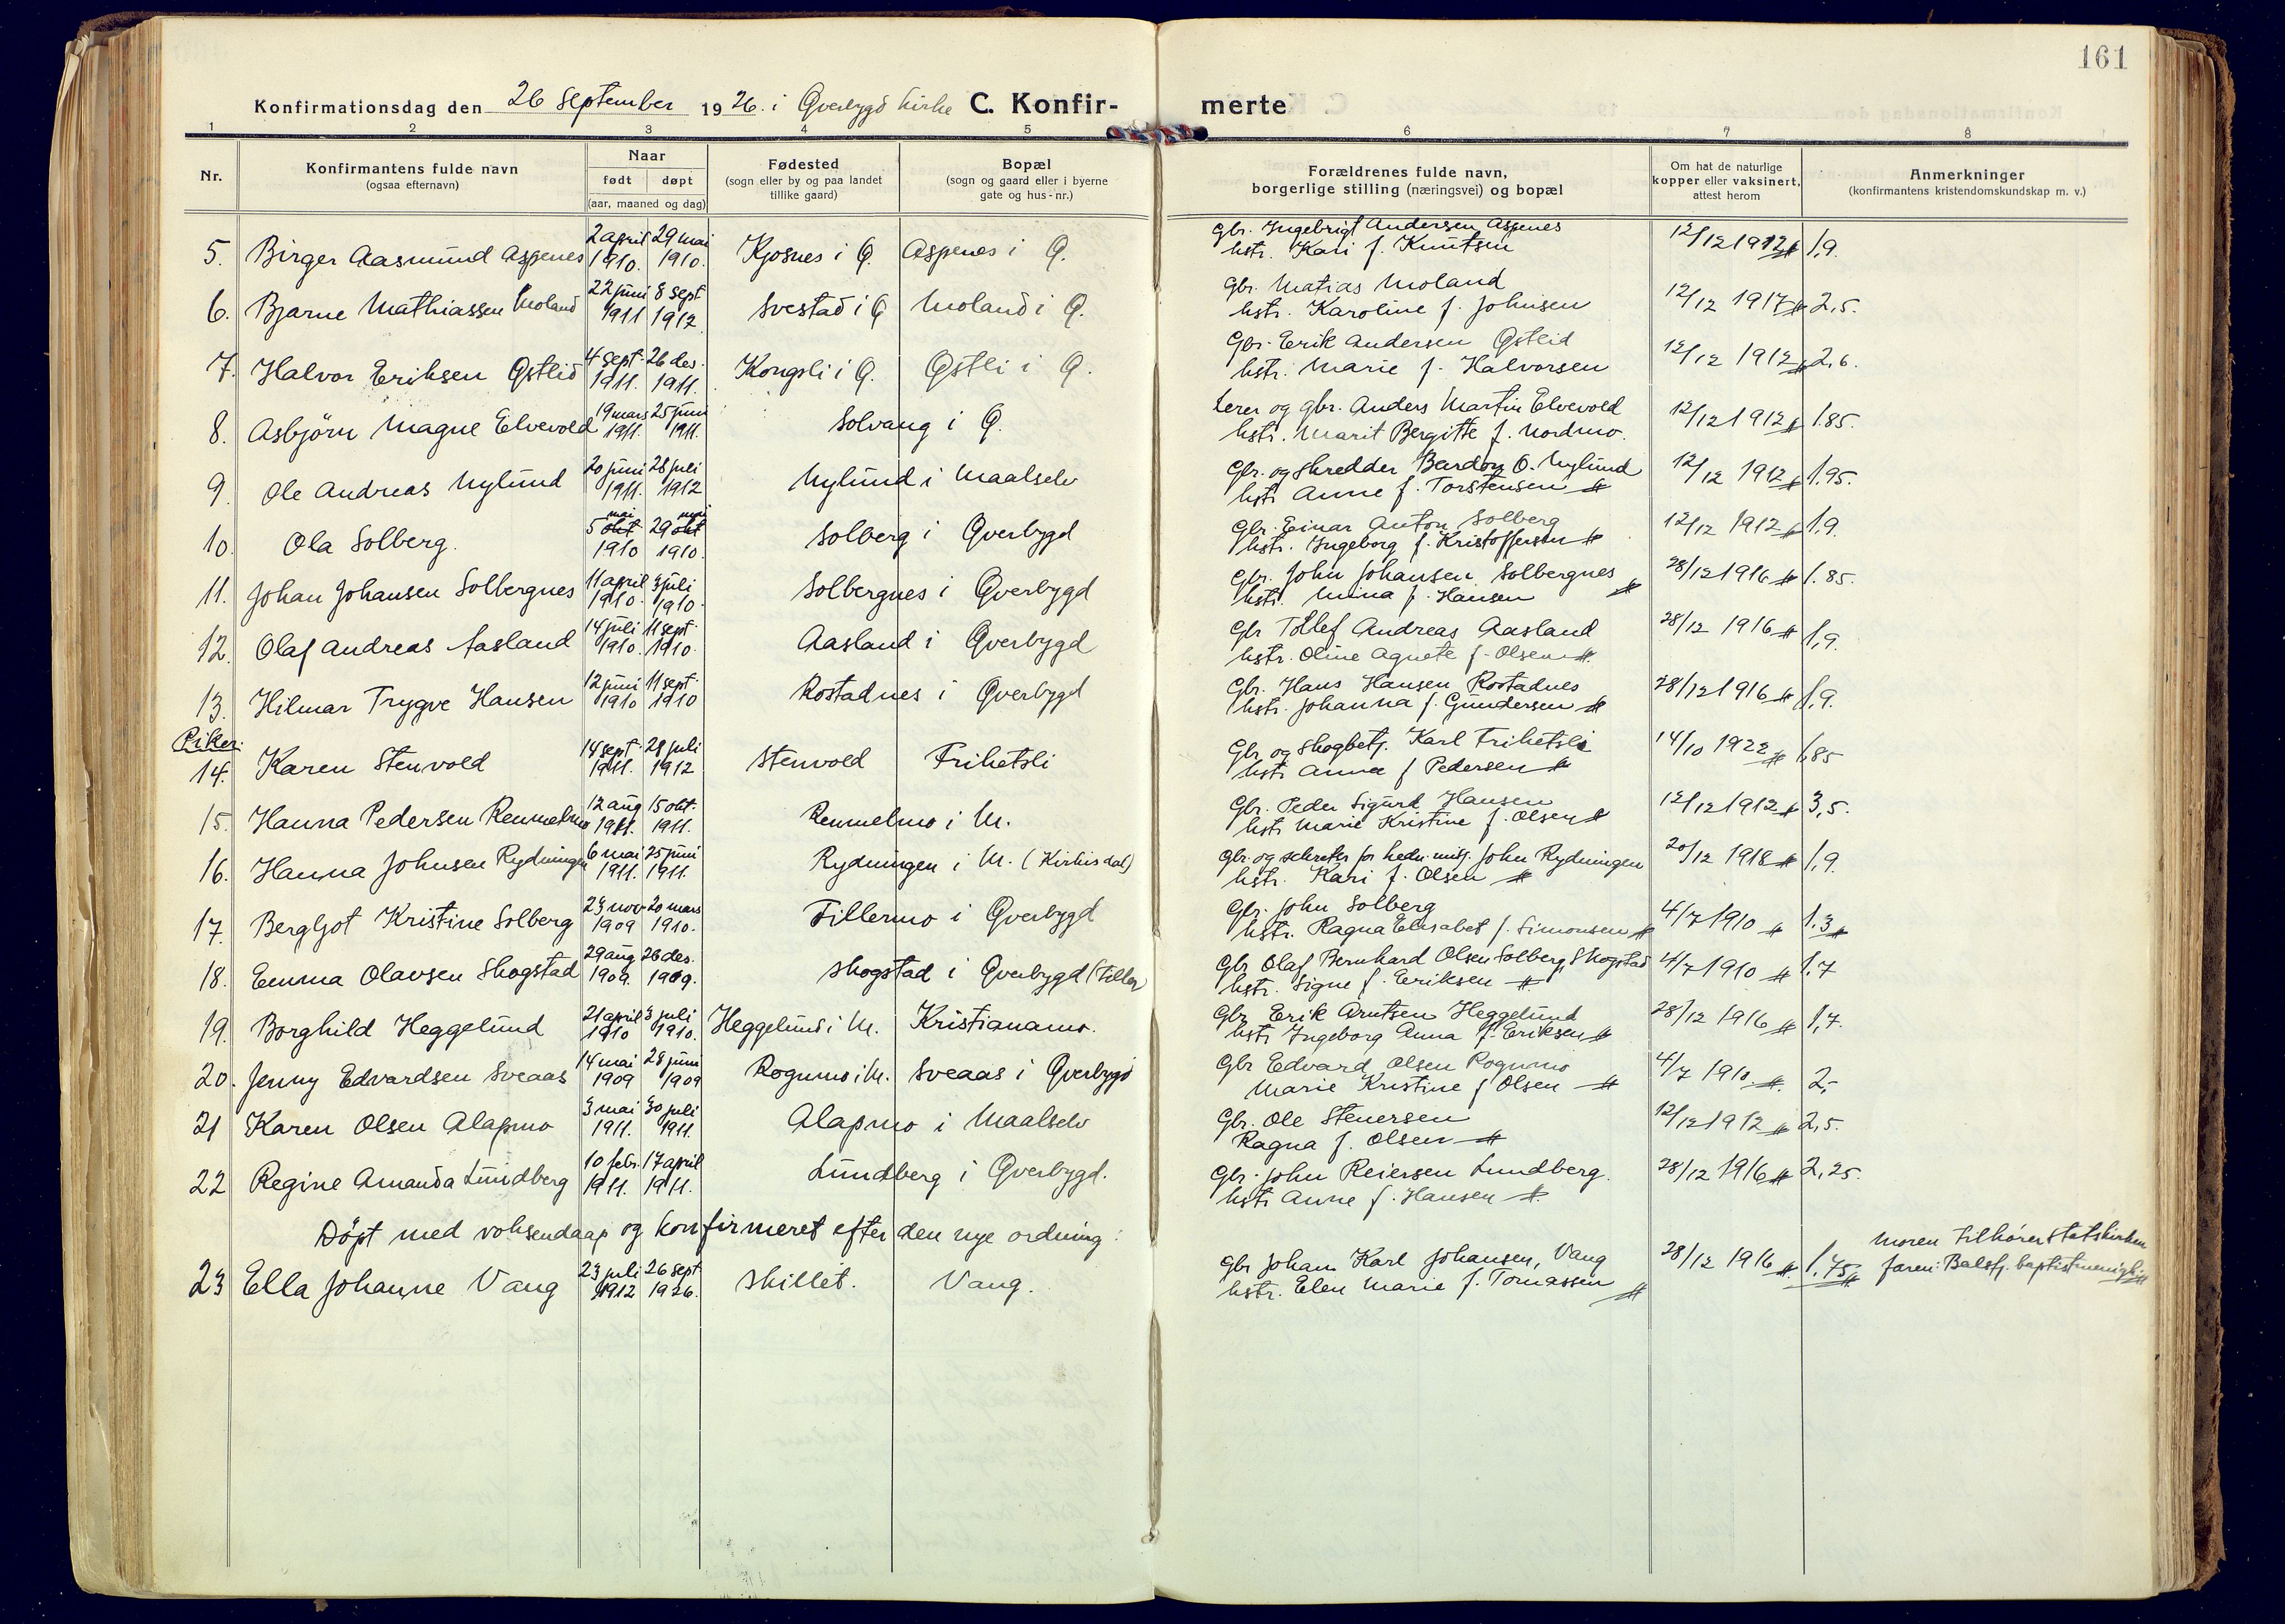 161
Konfirmationsdag den 26 September 1926. i Øverbygd kirke C. Konfirmerte
1 2 3 4 5 6 7 8
Nr.
Konfirmantens fulde navn
(ogsaa efternavn)
Naar
født døpt
(aar, maaned og dag)
Fødested
(sogn eller by og paa landet
tillike gaard)
Bopæl
(sogn og gaard eller i byerne
gate og hus-nr.)
Forældrenes fulde navn,
borgerlige stilling (næringsvei) og bopæl
Om hat de naturlige
kopper eller vaksinert,
attest herom
Anmerkninger
(konfirmantens kristendomskundskap m. v.)
5. Birger Aasmund Aspenes 2 april 1910. 29 mai 1910. Kjosnes i Ø. Aspenes i Ø. Gbr. Ingebrigt Andersen Aspenes 12/12 1912 1,9.
hstr. Kari f. Knutsen
6. Bjarne Mathiassen Moland 22 juni 1911 8 sept 1912. Svestad i Ø Moland i Ø. Gbr. Matias Moland 12/12 1917 2,5.
hstr. Karoline f. Johnsen
7. Halvor Eriksen Østlid 4 sept. 1911. 26 des. 1911. Kongsli i Ø. Østli i Ø. Gbr. Erik Andersen Østlid 12/12 1912 2,6.
hstr. Marie f. Halvorsen
8. Asbjörn Magne Elvevold 19 mars 1911. 25 juni 1911. Solvang i Ø. Lerer og gbr. Anders Martin Elvevold 12/12 1912 1.85.
hstr. Marit Bergitte f. Nordmo.
9. Ole Andreas Nylund 20 juni 1911. 28 juli 1912 Nylund i Maalselv Gbr. og skredder Bardon O. Nylund 12/12 1912 1.95.
hstr Anne f. Torstensen
10. Ola Solberg. 5 okt mai 1910 29 okt mai 1910. Solberg i Øverbygd Gbr. Einar Anton Solberg 12/12 1912 1,9.
hstr. Ingeborg f. Kristoffersen
11. Johan Johansen Solbergnes 11 april 1910. 3 juli 1910. Solbergnes i Øverbygd Gbr. John Johansen Solbergnes 28/12 1916 1.85.
hstr. Mina f. Hansen
12. Olaf Andreas Aasland 14 juli 1910. 11 sept. 1910. Aasland i Øverbygd Gbr Tollef Andreas Aasland 28/12 1916 1,9.
hstr. Oline Agnete f. Olsen
13. Hilmar Trygve Hansen 12 juni 1910 11 sept. 1910 Rostadnes i Øverbygd Gbr. Hans Hansen Rostadnes 28/12 1916 1,9.
hstr. Johanna f. Gundersen
Piker.
14. Karen Stenvold 14 sept. 1911. 28 juli 1912 Stenvold Frihetsli Gbr og skogbetj. Karl Frihetsli 14/10 1922 1,85
hstr Anna f Pedersen
15. Hanna Pedersen Remmelmo 12 aug 1911. 15 okt. 1911. Remmelmo i M. Gbr. Peder Sigurd Hansen 12/12 1912 3,5.
hstr Marie Kristine f. Olsen
16. Hanna Johnsen Rydningen 6 mai 1911. 25 juni 1911. Rydningen i M. (Kirkisdal) Gbr. og sekretær for hedn. misj. John Rydningen 20/12 1918 1,9.
hstr. Kari f. Olsen
17. Bergljot Kristine Solberg 23 nov 1909 20 mars 1910. Fillermo i Øverbygd Gbr. John Solberg 4/7 1910 1.3
hstr. Ragna Elisabet f. Simonsen
18. Emma Olavsen Skogstad 29 aug 1909. 26 des. 1909. Skogstad i Øverbygd (Filler) Gbr Olaf Bernhard Olsen Solberg, Skogstad 4/7 1910 1.7
hstr. Signe f. Eriksen
19. Borghild Heggelund 21 april 1910 3 juli 1910. Heggelund i M. Kristianamo. Gbr Erik Arntsen Heggelund 28/12 1916 1,7.
hstr Ingeborg Anna f. Eriksen
20. Jenny Edvardsen Sveaas 14 mai 1909 28 juni 1909 Rognmo i M. Sveaas i Øverbygd Gbr Edvard Olsen Rognmo 4/7 1910. 2,-
Marie Kristine f Olsen
21 Karen Olsen Alapmo 3 mai 1911. 30 juli 1911. Alapmo i Maalselv Gbr. Ole Stenersen 12/12 1912 2,5.
Ragna f. Olsen
22 Regine Amanda Lundberg 10 febr. 1911. 17 april 1911. Lundberg i Øverbygd. Gbr. John Reiersen Lundberg. 28/12 1916 2,25.
hstr Anne f. Hansen
Döpt med voksendaap og konfirmeret efter den nye ordning:
23 Ella Johanne Vang 23 juli 1912 26 sept 1926. Skillet. Vang. Gbr Johan Karl Johansen, Vang 28/12 1916 1.75 Moren tilhører statskirken
hstr. Elen Marie f. Tomassen faren: Balsfj. baptistmenighet